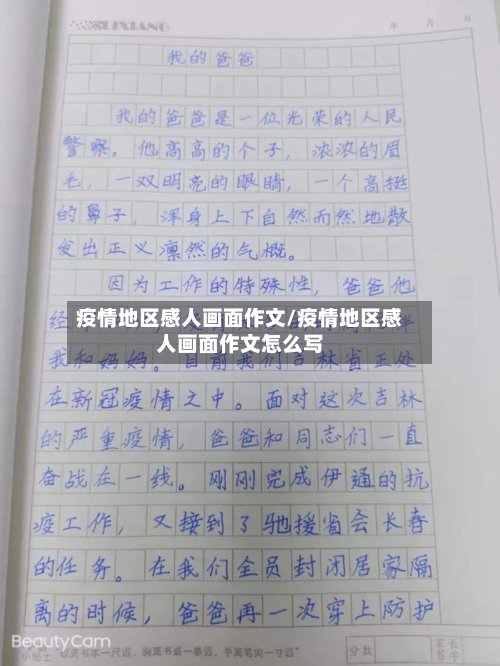 LIXIANG
年 月 日
我的爸爸
我的爸爸是一位光荣的人民
警察。他高高的个子，浓浓的眉
毛，一双明亮的眼睛，一个高挺
的鼻子，浑身上下自然而然地散
发出正义凛然的气概。
因为工作的特殊性，爸爸他
经
疫情地区感人画面作文/疫情地区感
人画面作文怎么写
伴
我和妈妈。目前我们吉林省正处
在新冠疫情之中。面对这次吉林
的严重疫情，爸爸和同志们一直
奋战在一线。刚刚完成伊通的抗
疫工作，又接到了驰援省会长春
的任务。在我们全员封闭居家隔
离的时候，爸爸再一次穿上防护
BeautyCam
小贴士 "眼离书本一尺远，胸离书桌一拳远，手离笔尖一寸远"
分数
家长
签字